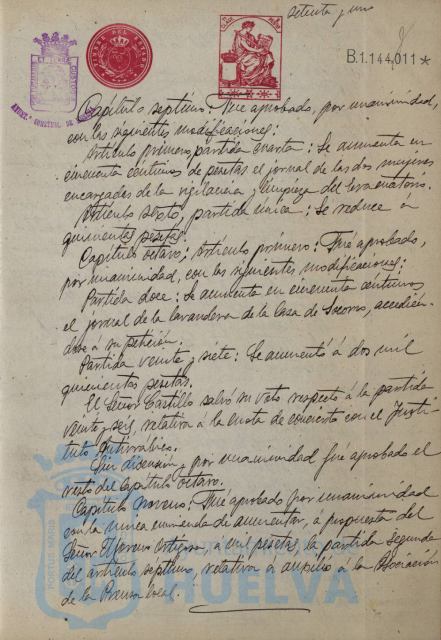 setenta y uno
B.1.144.011*
Capítulo septimo: Fué aprobado, por unanimidad,
con las siguientes modificaciones:
Artículo primero, partida cuarta: Se aumenta en
cincuenta centimos de pesetas el jornal de las dos mujeres
encargadas de la vigilancia y limpieza del evacuatorio.
Artículo sexto, partida única: Se reduce á
quinientas pesetas.
Capítulo octavo; Artículo primero: Fué aprobado,
por unanimidad, con las siguientes modificaciones:
Partida doce: Se aumenta en cincuenta centimos
el jornal de la lavandera de la Casa de Socorro, accedien-
dose á su petición.
Partida veinte y siete: Se aumentó á dos mil
quinientas pesetas.
El Señor Castillo salvó su voto respecto á la partida
veinte y seis, relativa á la cuota de concierto con el Insti-
tuto Antirrabico.
Sin discusión y por unanimidad fué aprobado el
resto del capítulo octavo.
Capítulo noveno: Fué aprobado por unanimidad
con la unica enmienda de aumentar, á propuesta del
Señor Moreno Ortega, á mil pesetas la partida segunda
del artículo septimo, relativa á auxilio á la Asociación
de la Prensa local.
PORTUS MARIS
HUELVA